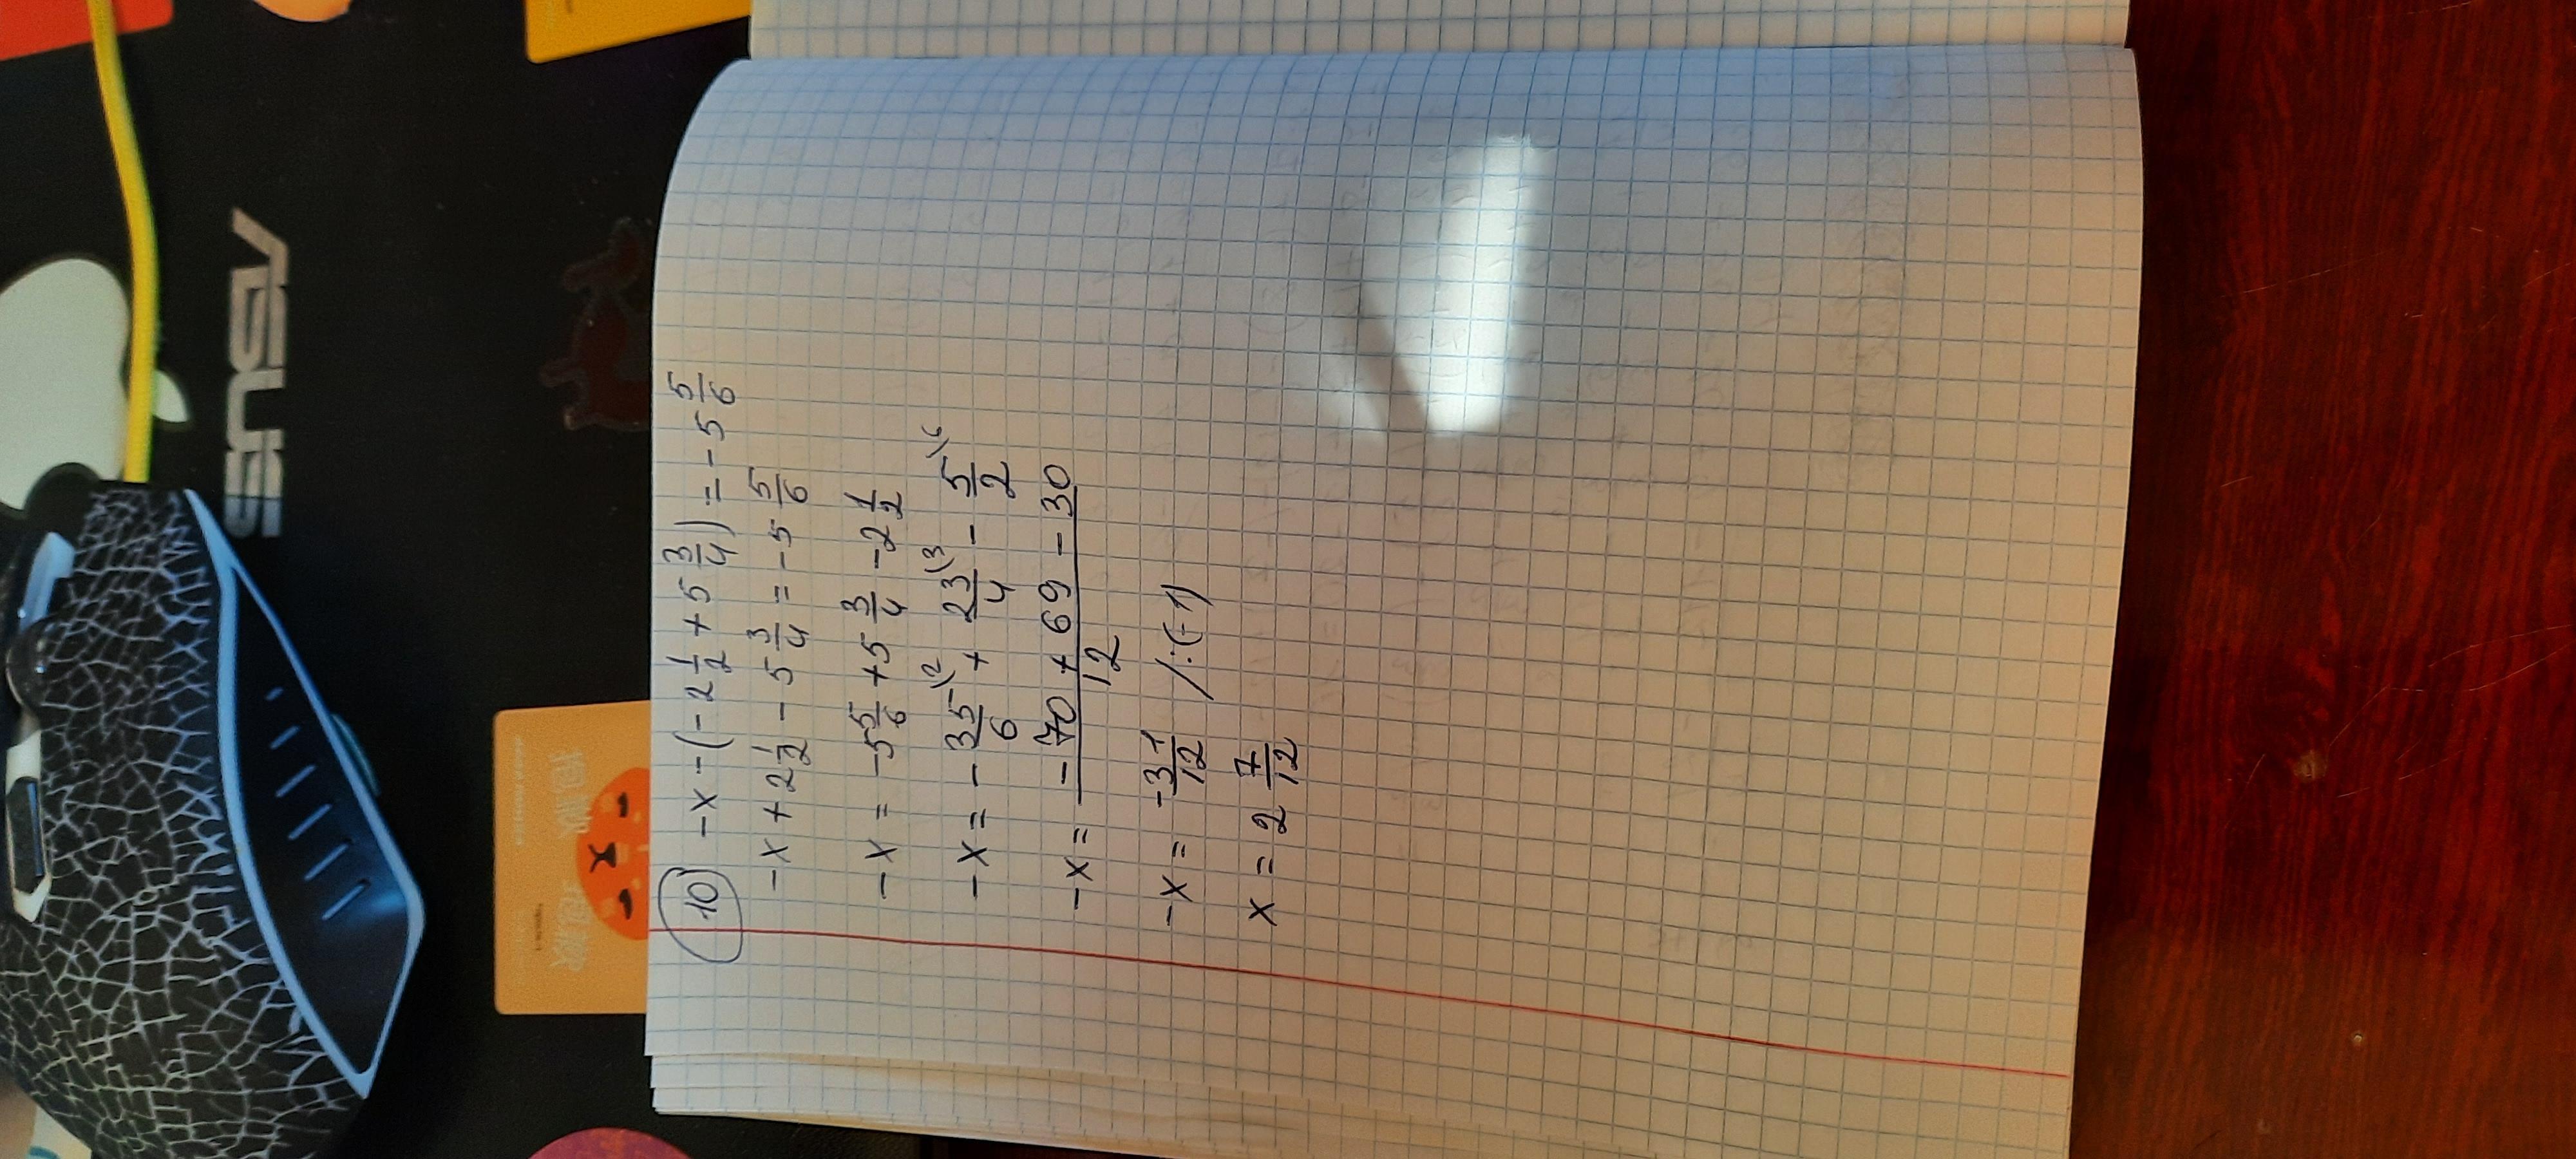 10 -x-(-2 1/2 + 5 3/4) = -5 5/6
-x + 2 1/2 - 5 3/4 = -5 5/6
-x = -5 5/6 + 5 3/4 - 2 1/2
-x = - 35/6 \2 + 23/4 \3 - 5/2 \6
-x = (-70 + 69 - 30)/12
-x = -31/12 /:(-1)
x = 2 7/12
ASUS